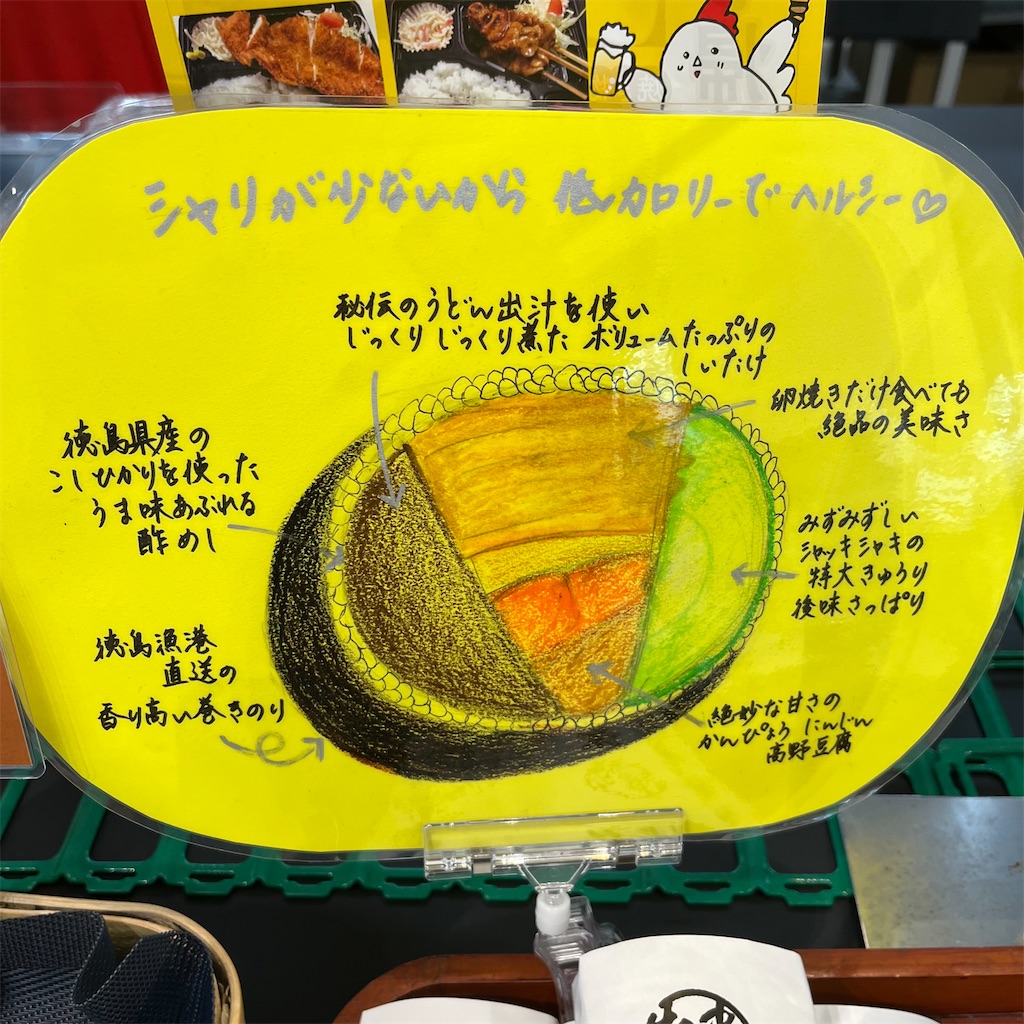 シャリが少ないから 低カロリーでヘルシー♡
秘伝のうどん出汁を使い
じっくりじっくり煮た ボリュームたっぷりの
しいたけ
卵焼きだけ食べても
絶品の美味さ
徳島県産の
こしひかりを使った
うま味あふれる
酢めし
みずみずしい
シャッキシャキの
特大きゅうり
後味さっぱり
徳島漁港
直送の
香り高い巻きのり
絶妙な甘さの
かんぴょう にんじん
高野豆腐